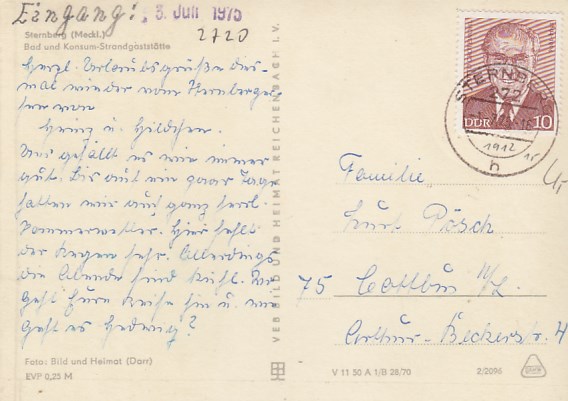 Eingang: 3. Juli 1975
2720
Sternberg (Meckl.)
Bad und Konsum-Strandgaststätte
Herzl. Urlaubsgrüße dies-
mal wieder vom Sternberger
See von
Heinz u. Hildchen.
Uns gefällt es wie immer
gut. Bis auf ein paar Tage
hatten wir auch ganz herrl.
Sommerwetter. Hier fehlt
der Regen sehr. Allerdings
die Abende sind kühl. Wo
geht Eure Reise hin u. wie
geht es Hedwig?
Foto: Bild und Heimat (Darr)
EVP 0,25 M
VEB BILD UND HEIMAT REICHENBACH I.V.
STERNBERG
272
1912
h
DDR 10
Familie
Kurt Pösch
75 Cottbus
Arthur-Beckerstr. 4
V 11 50 A 1/B 28/70
2/2096